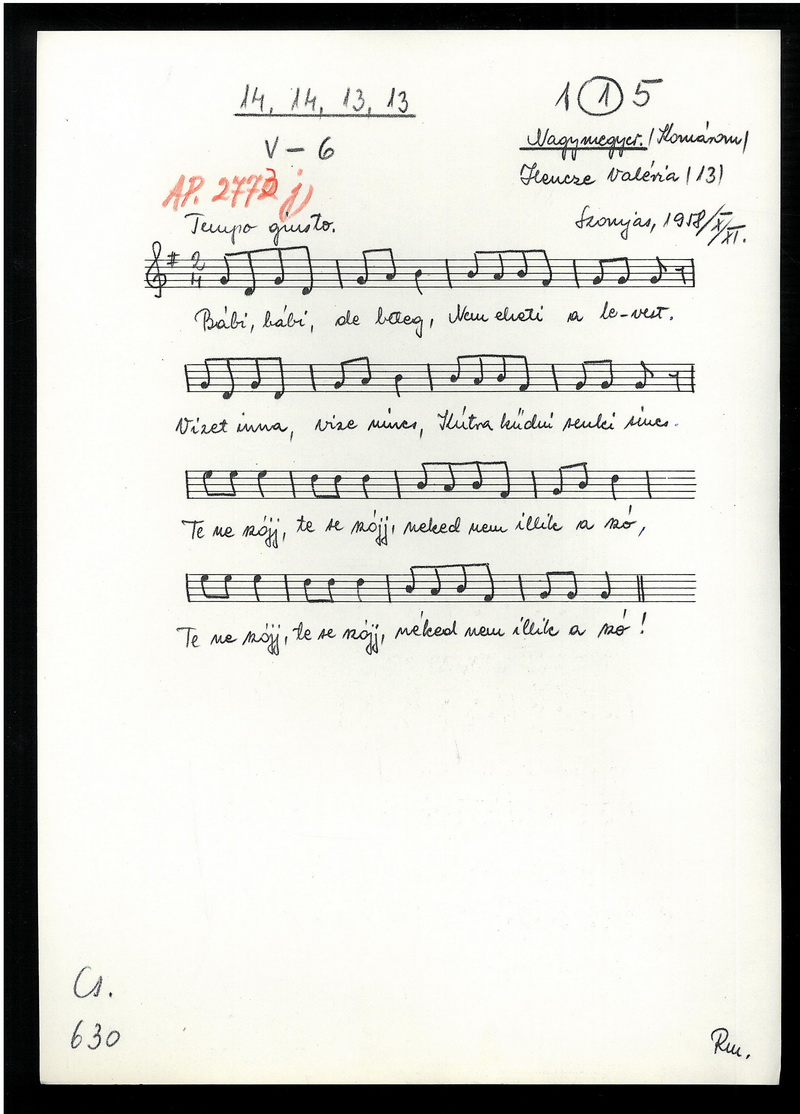 14, 14, 13, 13
1 1 5
V - 6
Nagymegyer. (Komárom)
Valéria (13)
AP. 2773 j)
Szomjas, 1958/X/XI.
Tempo giusto.
2
4
Bábi, bábi, de beteg, Nem eheti a le-vest.
Vizet inna, vize nincs, Kútra küdni senki sincs.
Te ne szójj, te se szójj, neked nem illik a szó,
Te ne szójj, te se szójj, néked nem illik a szó!
Cs.
630
Rm.